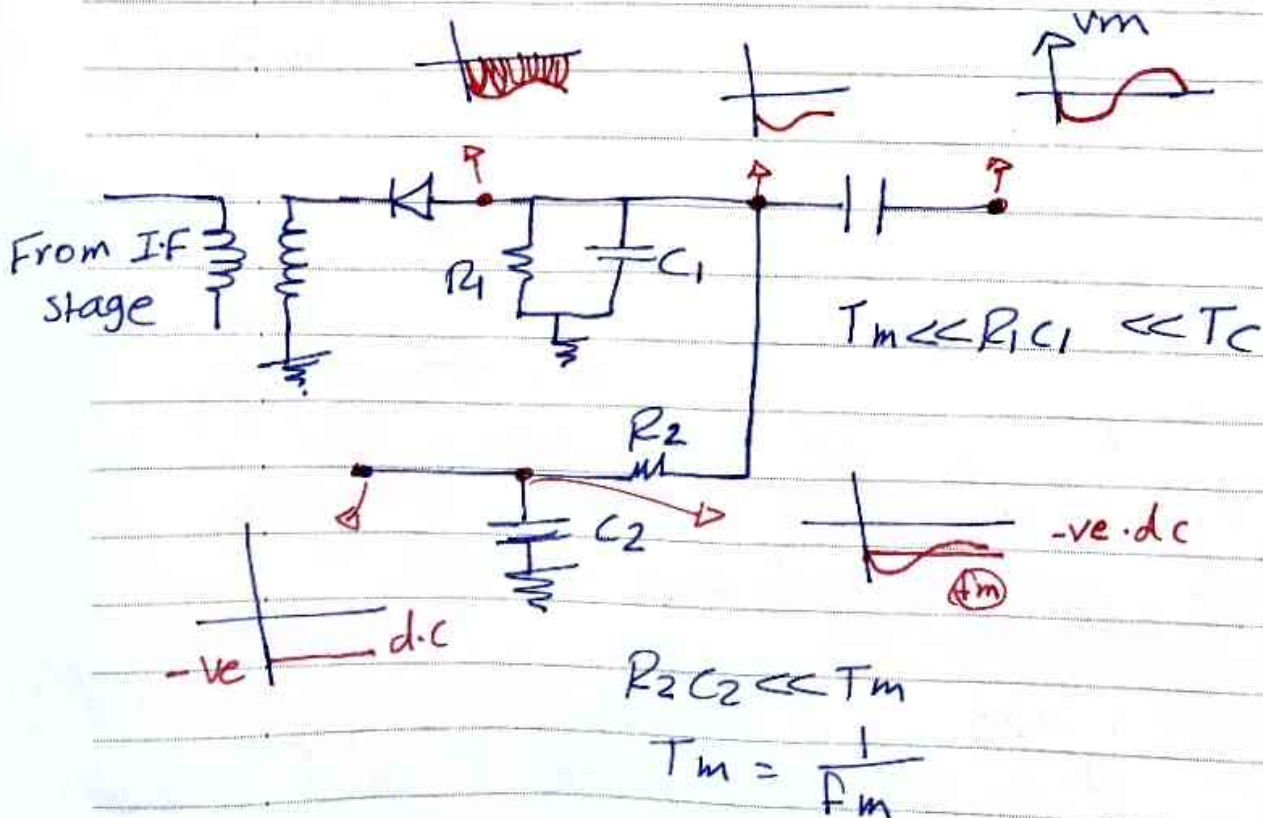 Vm
From I.F
stage
R1
C1
Tm << R1C1 << Tc
R2
C2
-ve.dc
fm
-ve
d.c
R2C2 << Tm
Tm = 1/fm